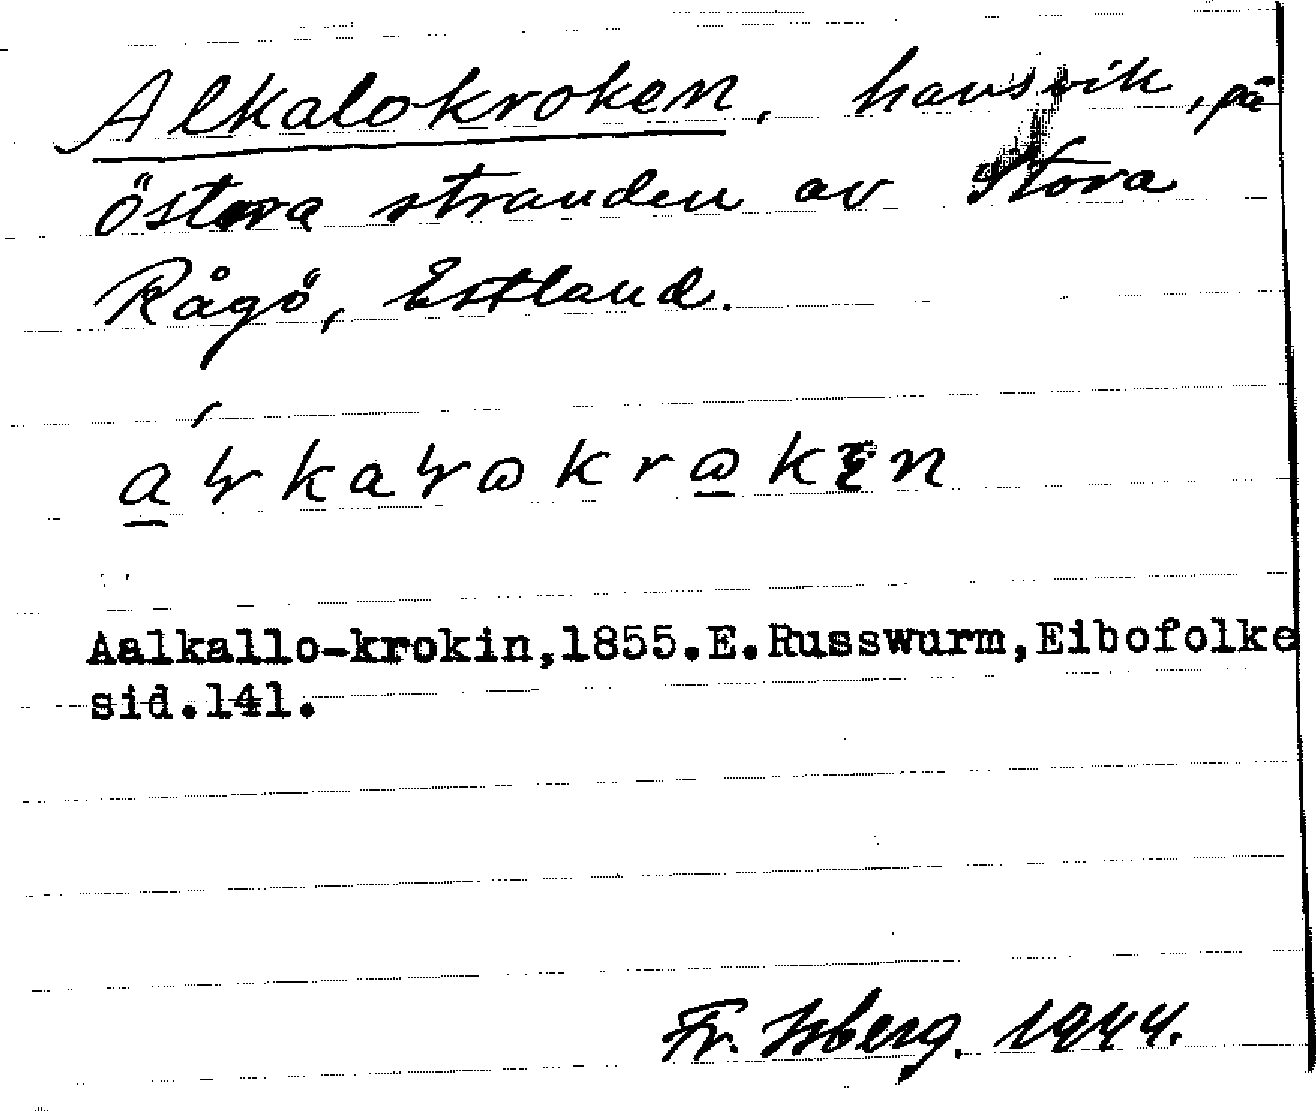 Alkalokroken, havsvik, på
östra stranden av Stora
Rågö, Estland.
Aalkallo-krokin,1855.E.Russwurm,Eibofolke
sid.141.
Fr. Isberg. 1944.